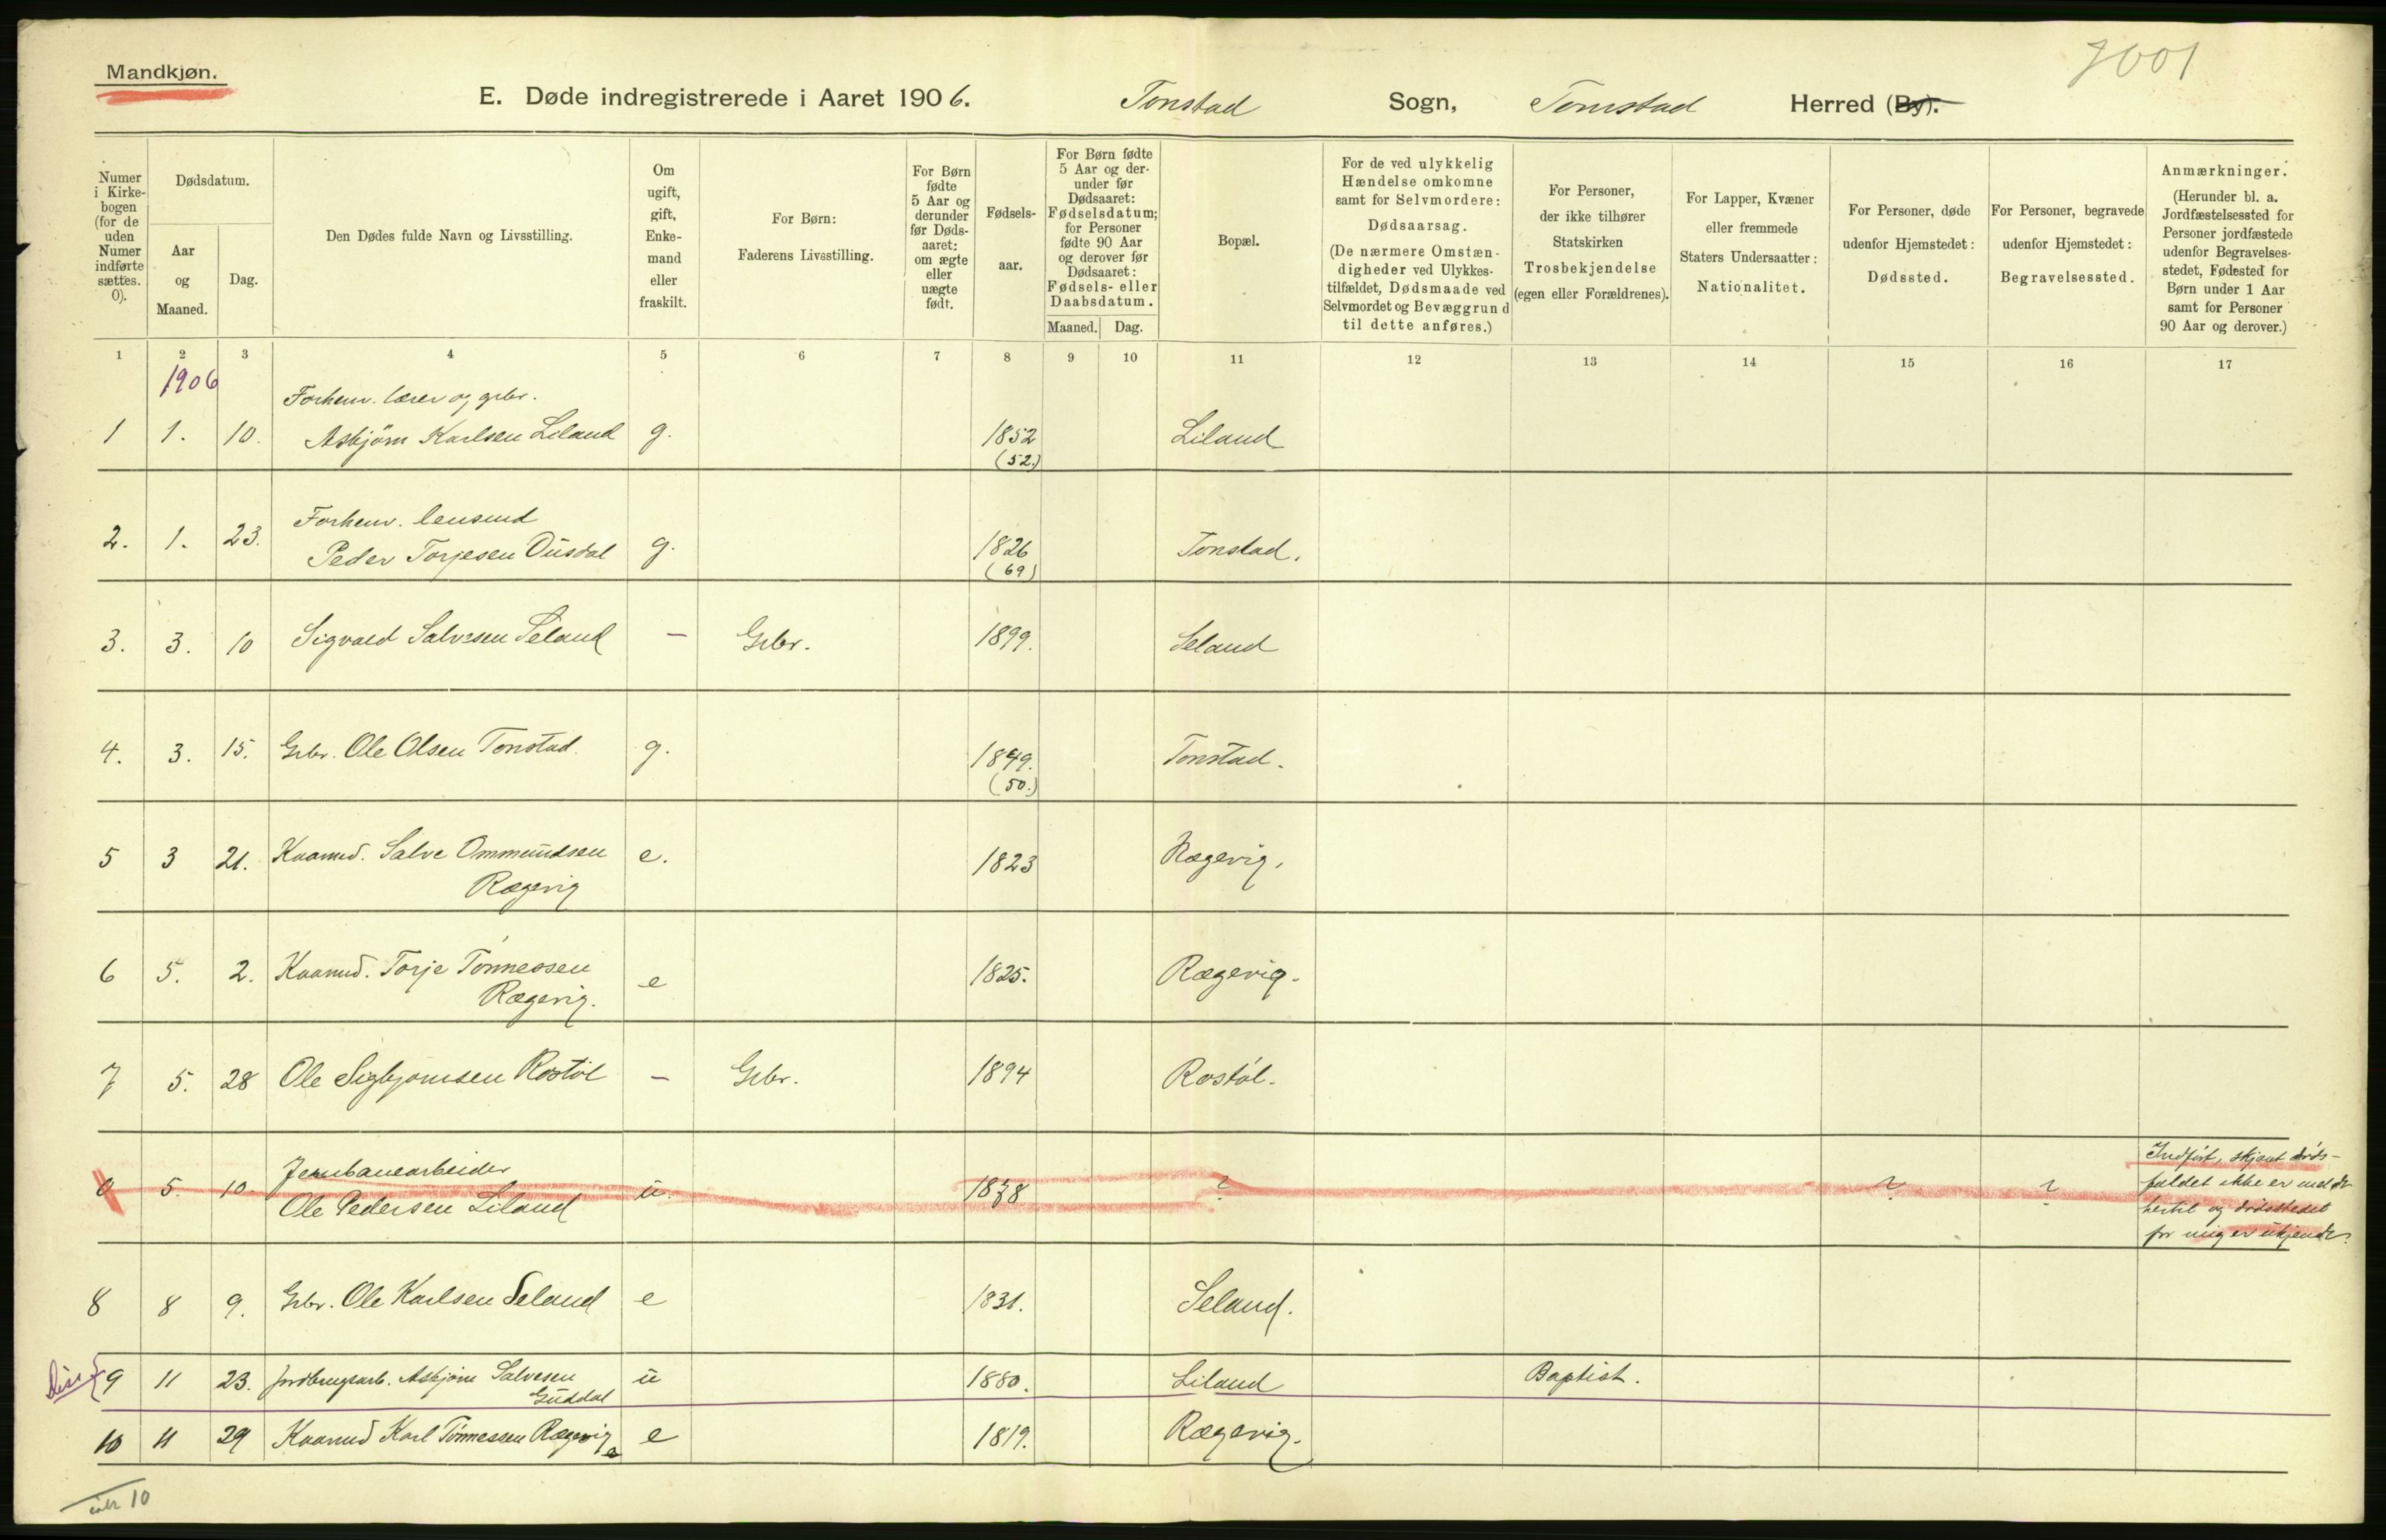 7001
Mandkjøn.
E. Døde indregistrerede i Aaret 1906. Tonstad Sogn, Tonstad Herred (By).
Numer i Kirkebogen (for de uden Numer indførte sættes. 0).
Dødsdatum.
Aar og Maaned.
Dag.
Den Dødes fulde Navn og Livsstilling.
Om ugift, gift, Enkemand eller fraskilt.
For Børn: Faderens Livsstilling.
For Børn fødte 5 Aar og derunder før Dødsaaret: om ægte eller uægte født.
Fødselsaar.
For Børn fødte 5 Aar og derunder før Dødsaaret: Fødselsdatum; for Personer fødte 90 Aar og derover før Dødsaaret: Fødsels- eller Daabsdatum.
Maaned. Dag.
Bopæl.
For de ved ulykkelig Hændelse omkomne samt for Selvmordere: Dødsaarsag. (De nærmere Omstændigheder ved Ulykkestilfældet, Dødsmaade ved Selvmordet og Bevæggrund til dette anføres.)
For Personer, der ikke tilhører Statskirken Trosbekjendelse (egen eller Forældrenes).
For Lapper, Kvæner eller fremmede Staters Undersaatter: Nationalitet.
For Personer, døde udenfor Hjemstedet: Dødssted.
For Personer, begravede udenfor Hjemstedet: Begravelsessted.
Anmærkninger. (Herunder bl. a. Jordfæstelsessted for Personer jordfæstede udenfor Begravelsesstedet, Fødested for Børn under 1 Aar samt for Personer 90 Aar og derover.)
1 2 3 4 5 6 7 8 9 10 11 12 13 14 15 16 17
1906
Forhenv. lærer og grbr.
1 1. 10. Asbjörn Karlsen Liland g. 1852 Liland
(52.)
Forhenv. lensmd
2. 1. 23. Peder Torjesen Ousdal g. 1826 Tonstad.
(69)
3. 3. 10 Sigvald Salvesen Seland — Grbr. 1899. Seland
4. 3. 15. Grbr. Ole Olsen Tonstad g. 1849. Tonstad.
(50.)
5 3 21. Kaarmd. Salve Ommundsen e. 1823 Rægevig.
Rægevig
6 5. 2. Kaarmd. Torje Tönnessen e 1825. Rægevig.
Rægevig.
7 5. 28 Ole Sigbjørnsen Røstöl — Grbr. 1894 Røstöl.
Jernbanearbeider
0 5. 10. Ole Pedersen Liland u. 1878 ? ? ?
Indført, skjønt döds-
faldet ikke er meldt
hertil og dödsstedet
for mig er ukjendt.
8 8 9. Grbr. Ole Karlsen Seland e 1831. Seland.
Diss. 9 11 23. jordbrugsarb. Asbjörn Salvesen u 1880. Liland Baptist.
Guddal
10 11 29 Kaarmd Karl Tönnessen Rægevig e 1819. Rægevig.
10